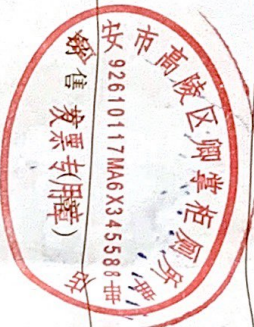 安市高陵区卿掌柜
92610117MA6X345588
销售
发票专(用章)